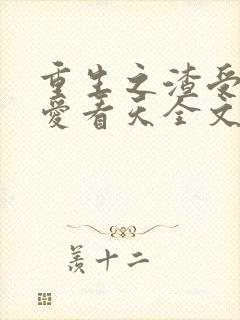 重生之渣受
爱看天全文
羡十二